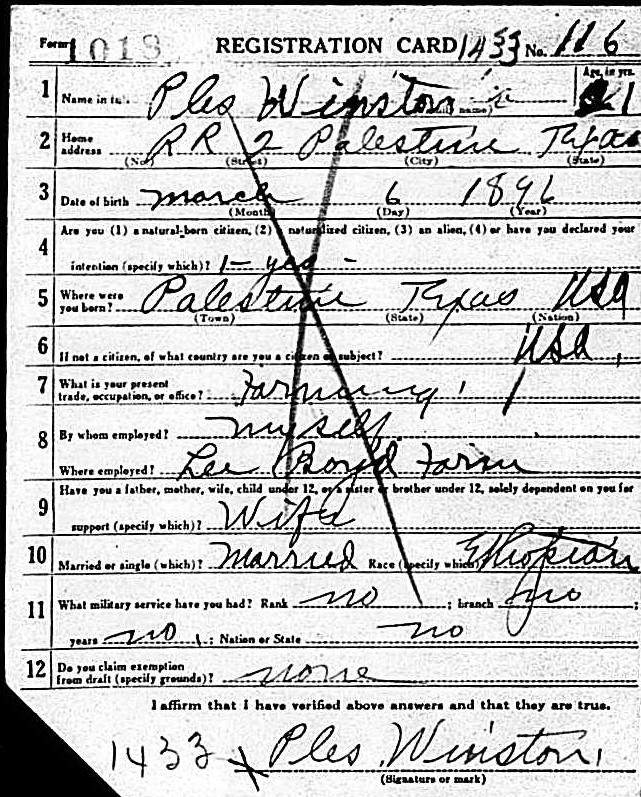 Form 1013 REGISTRATION CARD 1433 No. 116
1 Name in full Ples Winston (Family name) Age, in yrs. 21
2 Home address RR 2 Palestine Texas
(No.) (Street) (City) (State)
3 Date of birth March 6 1896
(Month) (Day) (Year)
Are you (1) a natural-born citizen, (2) naturalized citizen, (3) an alien, (4) or have you declared your
4 intention (specify which)? 1 - yes -
5 Where were you born? Palestine Texas USA
(Town) (State) (Nation)
6 If not a citizen, of what country are you a citizen or subject? USA
7 What is your present trade, occupation, or office? Farming
8 By whom employed? myself
Where employed? Lee Boyd Farm
9 Have you a father, mother, wife, child under 12, or a sister or brother under 12, solely dependent on you for
support (specify which)? Wife
10 Married or single (which)? Married Race (specify which) Ethiopian
11 What military service have you had? Rank no ; branch no ;
years no ; Nation or State no
12 Do you claim exemption from draft (specify grounds)? none
I affirm that I have verified above answers and that they are true.
1433 x Ples Winston
(Signature or mark)